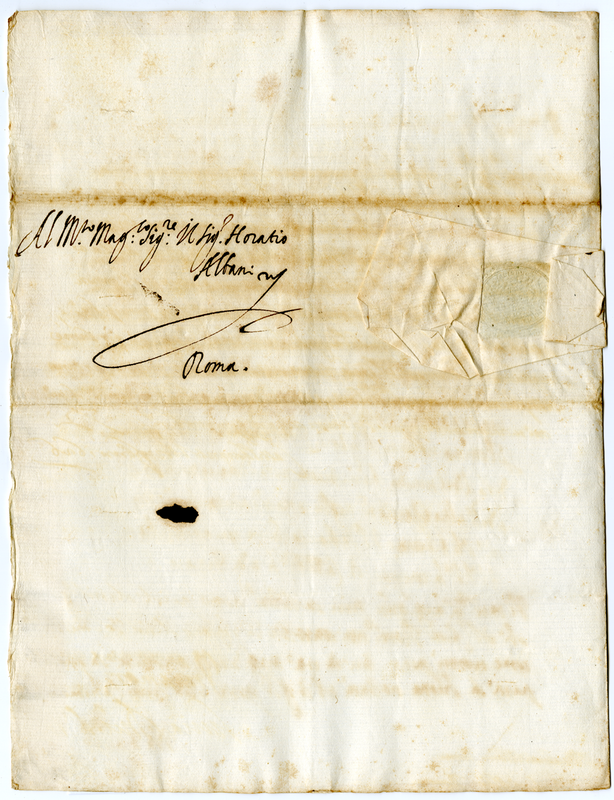 Al M.to Mag.co Sig.re il Sig.r Horatio
Albani
Roma.